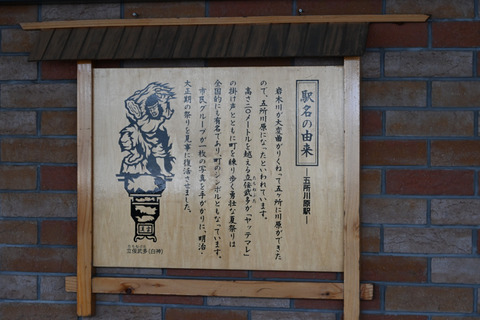 駅名の由来
―五所川原駅―
岩木川が大変曲がりくねって五ヶ所に川原ができた
ので、五所川原になったといわれています。
高さ二〇メートルを越える立佞武多が「ヤッテマレ」
たちねぷた
の掛け声とともに町を練り歩く勇壮な夏祭りは
全国的にも有名であり、町のシンボルともなっています。
市民グループが一枚の写真を手がかりに、明治・
大正期の祭りを見事に復活させました。
たちねぷた
立佞武多(白神)